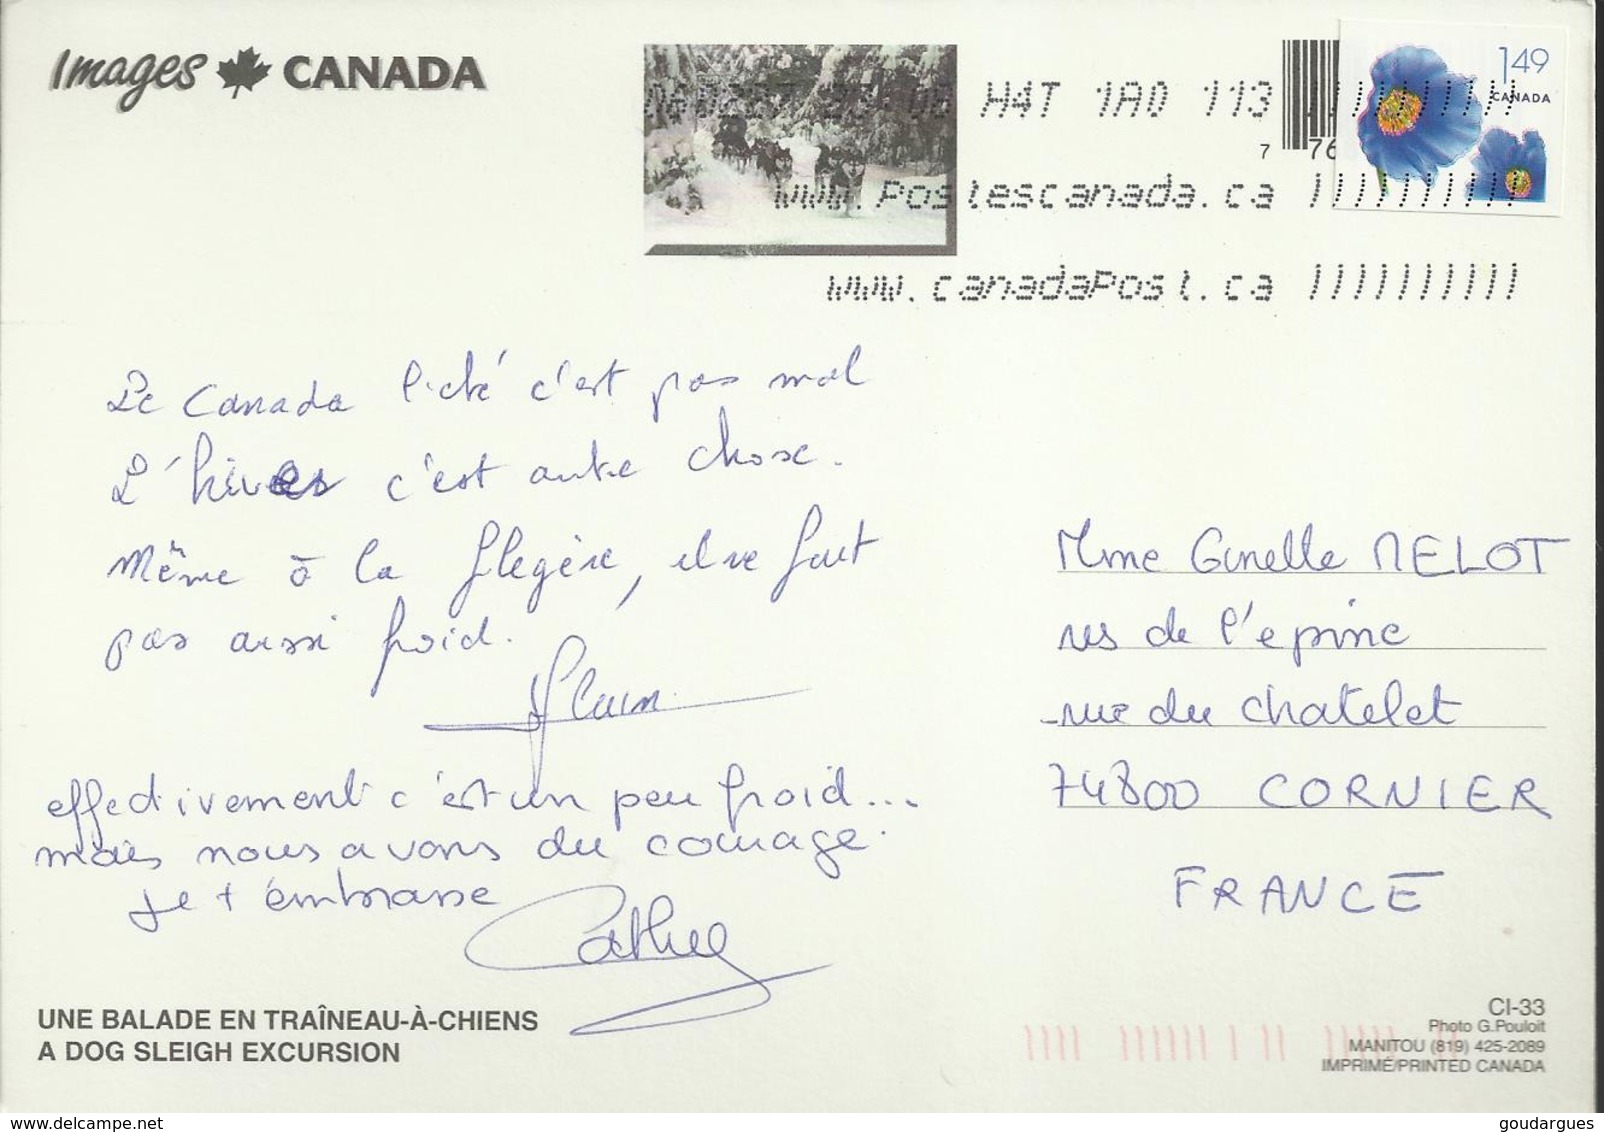 Images CANADA
H4T 1A0 113
1.49
CANADA
7 76
www.postescanada.ca
www.canadapost.ca
Le Canada l'été c'est pas mal
L'hiver c'est autre chose.
même à la flegère, il ne fait
pas aussi froid.
effectivement c'est un peu froid...
mais nous avons du courage.
je t'embrasse
Cathy
Mme Ginelle MELOT
res de l'epine
rue du chatelet
74800 CORNIER
FRANCE
UNE BALADE EN TRAÎNEAU-À-CHIENS
A DOG SLEIGH EXCURSION
CI-33
Photo G.Pouloit
MANITOU (819) 425-2089
IMPRIMÉ/PRINTED CANADA
goudargues